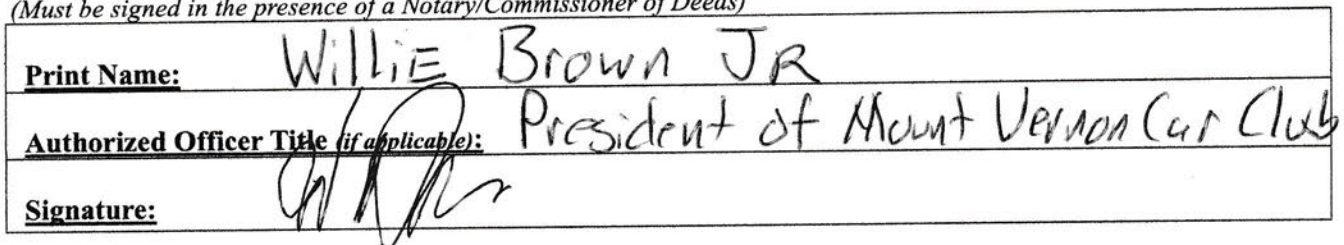 (Must be signed in the presence of a Notary/Commissioner of Deeds)
Print Name: WilliE Brown JR
Authorized Officer Title (if applicable): President of Mount Vernon Car Club
Signature: